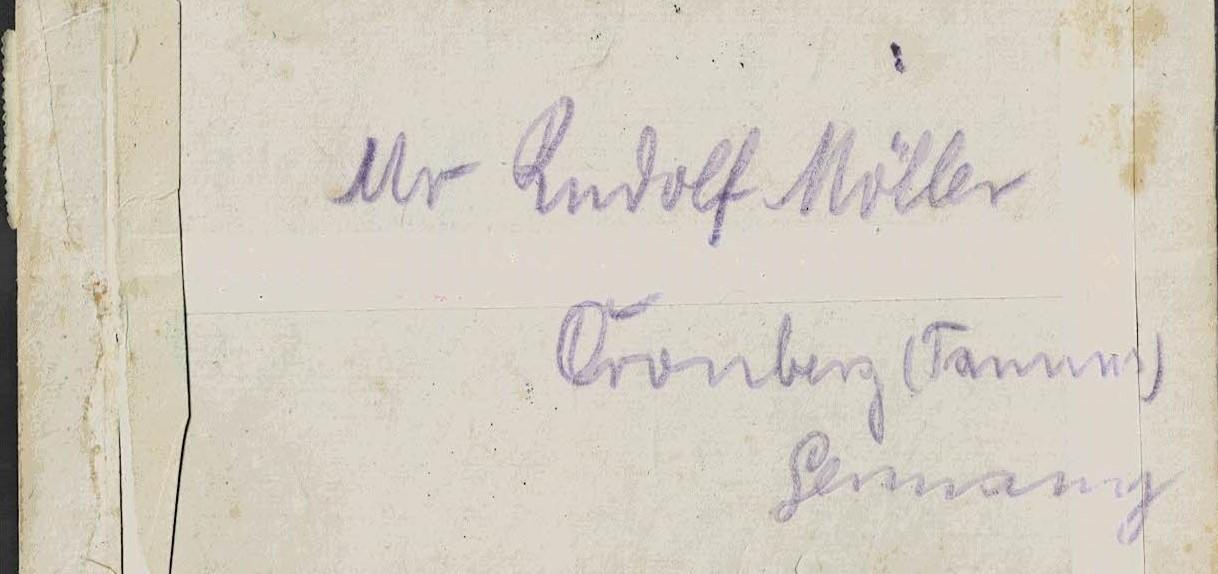 Mr Rudolf Möller
Cronberg (Taunus)
Germany